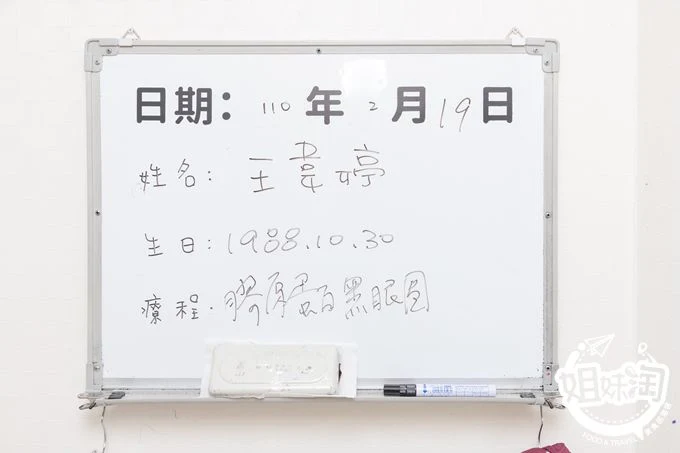 日期: 110 年 2 月 19 日
姓名: 王韋婷
生日: 1988.10.30
療程. 膠原蛋白黑眼圈
姐妹淘
FOOD & TRAVEL